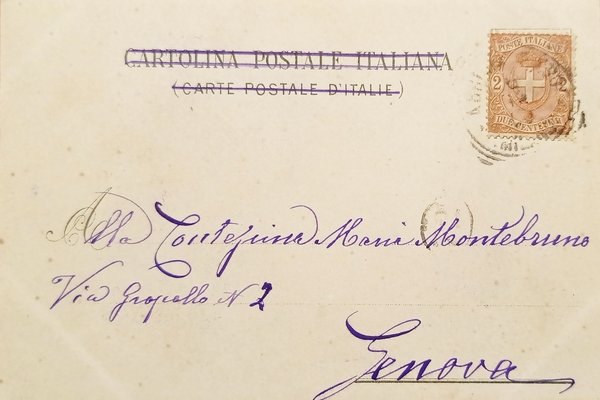 CARTOLINA POSTALE ITALIANA
(CARTE POSTALE D'ITALIE)
POSTE ITALIANE
2 2
DUE CENTESIMI
Alla Contessina Maria Montebruno
Via Gropallo N 2
Genova